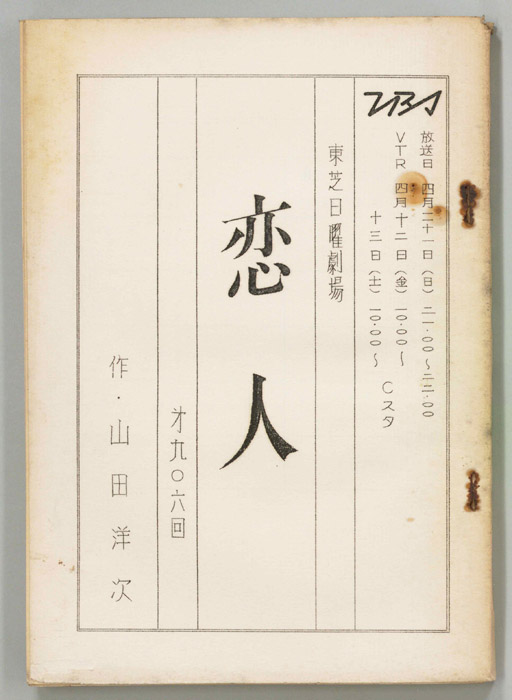 TBS
放送日 四月二十一日(日)二一・〇〇〜二二・〇〇
VTR 四月十二日(金)一〇・〇〇〜
十三日(土)一〇・〇〇〜 Cスタ
東芝日曜劇場
恋人
才九〇六回
作・山田洋次